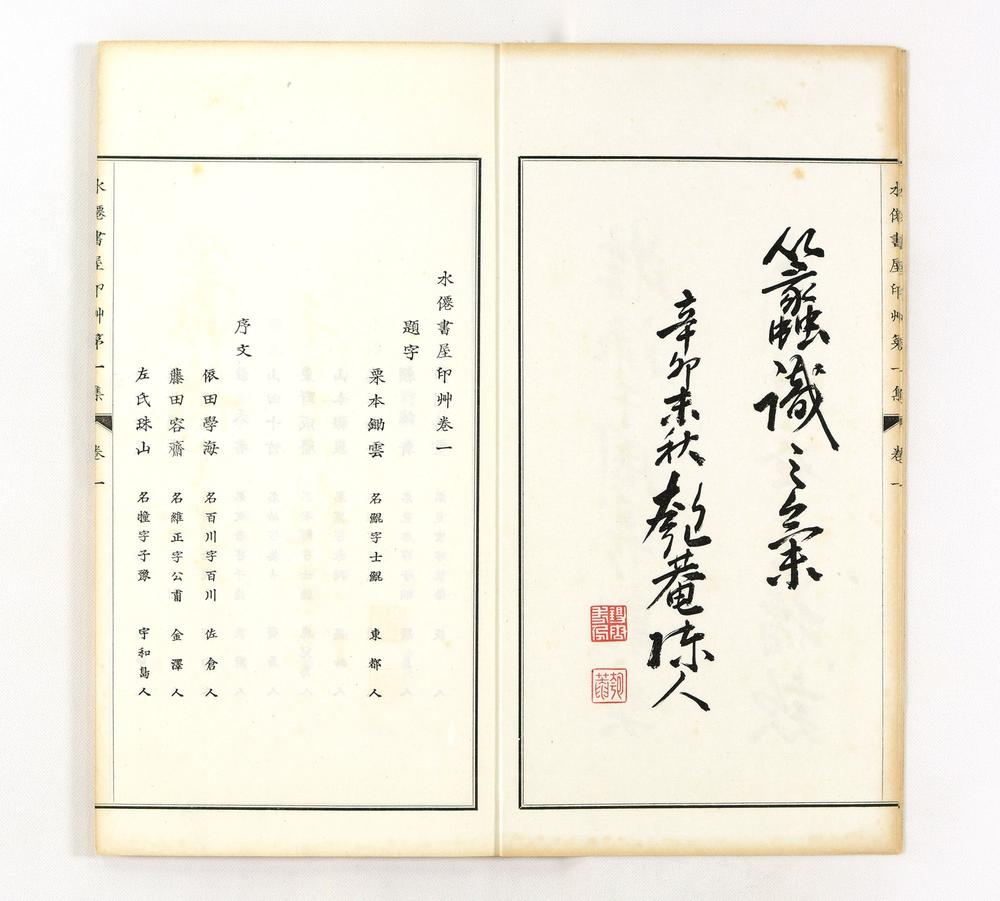 水僊書屋印艸第一集 卷一
識之氣
辛卯末秋匏菴陳人
水僊書屋印艸卷一
題字
栗本鋤雲 名鯤字士鯤 東郡人
序文
依田學海 名百川字百川 佐倉人
藤田容齋 名維正字公甫 金澤人
左氏珠山 名撞字子豫 宇和島人
水僊書屋印艸第一集 卷一